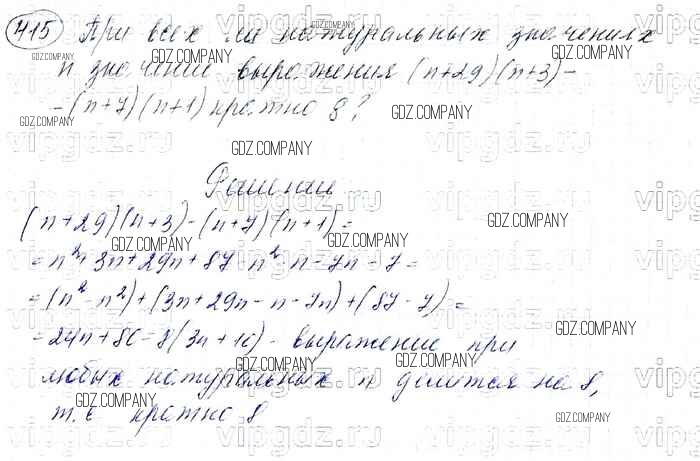 415 При всех ли натуральных значениях
n значение выражения (n+29)(n+3)-
-(n+7)(n+1) кратно 8?
Решение
(n+29)(n+3)-(n+7)(n+1)=
=n²+3n+29n+87-n²-n-7n-7=
=(n²-n²)+(3n+29n-n-7n)+(87-7)=
=24n+80=8(3n+10) - выражение при
любых натуральных n делится на 8,
т.е кратно 8